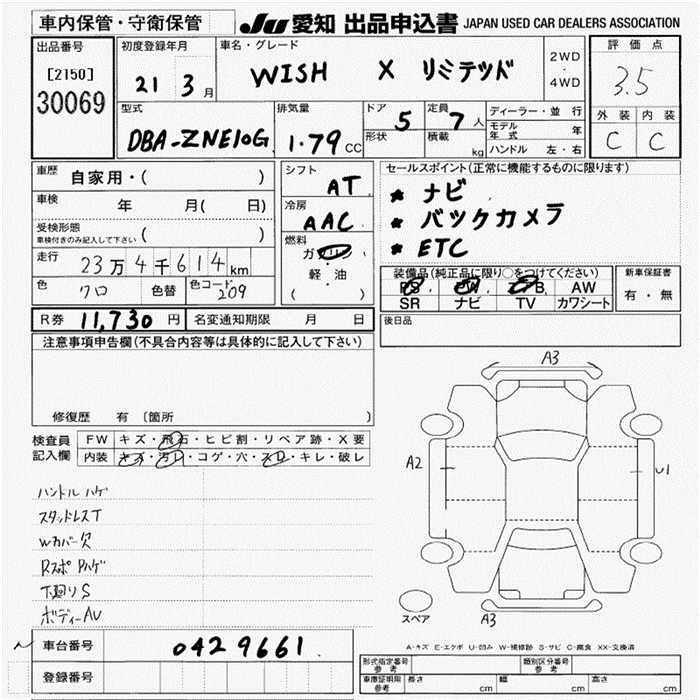 車内保管・守衛保管
JU 愛知 出品申込書 JAPAN USED CAR DEALERS ASSOCIATION
出品番号
[2150]
30069
初度登録年月
21 3 月
車名・グレード
WISH X リミテッド
2WD
・
4WD
評価点
3.5
外装 内装
C C
型式
DBA-ZNE10G
排気量
1.79 CC
ドア 5
形状
定員 7 人
積載 kg
ディーラー・並行
モデル年式 年
ハンドル 左・右
車歴
自家用・( )
車検 年 月( 日)
受検形態
車検付きのみ記入して下さい ( )
走行 23万4千614km
色 クロ 色替 色コード 209
シフト
AT
冷房
AAC
燃料
ガソリン
・
軽・油
( )
セールスポイント(正常に機能するものに限ります)
* ナビ
* バックカメラ
* ETC
装備品(純正品に限り○をつけてください)
PS PW AW
SR ナビ TV カワシート
新車保証書
有・無
R券 11,730 円 名変通知期限 月 日
後日品
注意事項申告欄(不具合内容等は具体的に記入して下さい)
修復歴 有〔箇所 〕
検査員
記入欄
FW キズ・飛石・ヒビ割・リペア跡・X要
内装 キズ・汚レ・コゲ・穴・スレ・キレ・破レ
ハンドルハゲ
スタッドレスT
Wカバー欠
Rスポハゲ
下廻りS
ボディーAU
A3
A2
U1
A3
スペア
A-キズ E-エクボ U-凹み W-補修跡 S-サビ C-腐食 XX-交換済
車台番号 0429661
登録番号
形式指定番号
参考
類別区分番号
参考
車庫証明用
参考
長さ cm 幅 cm 高さ cm